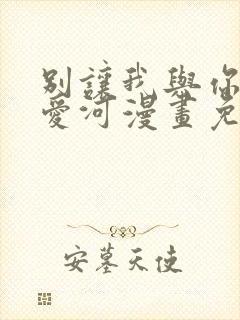 別讓我與你
愛河漫畫免
安墓天使